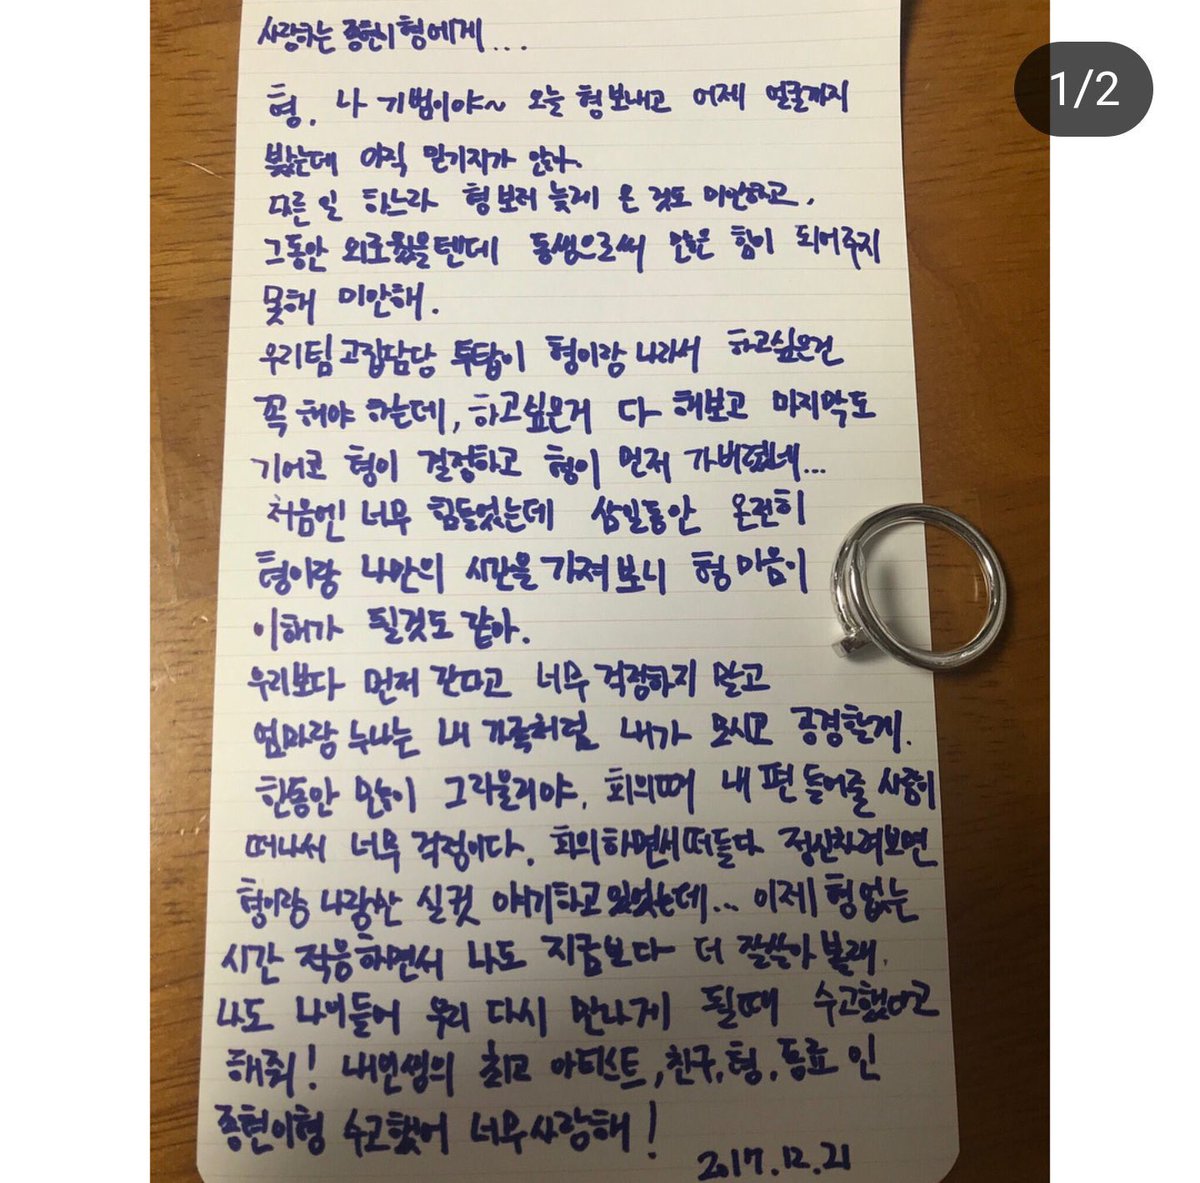 1/2
사랑하는 종현이형에게...
형. 나 기범이야~ 오늘 형보내고 어제 얼굴까지
봤는데 아직 믿기지가 않아.
다른 일 하느라 형보러 늦게 온 것도 미안하고,
그동안 외로웠을텐데 동생으로써 많은 힘이 되어주지
못해 미안해.
우리팀 고집담당 투탑이 형이랑 나라서 하고싶은건
꼭 해야 하는데, 하고싶은거 다 해보고 마지막도
기어코 형이 결정하고 형이 먼저 가버렸네...
처음엔 너무 힘들었는데 삼일동안 온전히
형이랑 나만의 시간을 가져보니 형 마음이
이해가 될것도 같아.
우리보다 먼저 간다고 너무 걱정하지 말고
엄마랑 누나는 내 가족처럼 내가 모시고 공경할게.
한동안 많이 그리울거야. 회의때 내 편 들어줄 사람이
떠나서 너무 걱정이다. 회의하면서 떠들다 정신차려보면
형이랑 나랑만 실컷 얘기하고 있었는데... 이제 형 없는
시간 적응하면서 나도 지금보다 더 잘살아 볼래.
나도 나이들어 우리 다시 만나게 될때 수고했다고
해줘! 내인생의 최고 아티스트, 친구, 형, 동료 인
종현이형 수고했어 너무사랑해!
2017.12.21